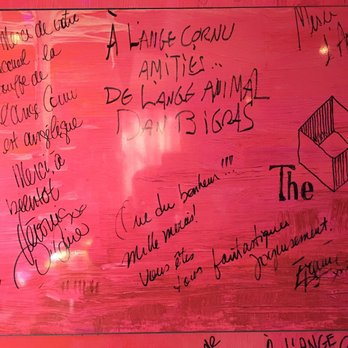 Merci de votre
accueil
bouffe de la
l'ange Cornu
est angélique
Merci, à
bientôt
À L'ANGE CORNU
AMITIÉS...
DE L'ANGE ANIMAL
DAN BIGRAS
Que du bonheur!!!
Mille mercis!
Vous êtes
tous fantastiques
joyeusement.
The
À L'ANGE